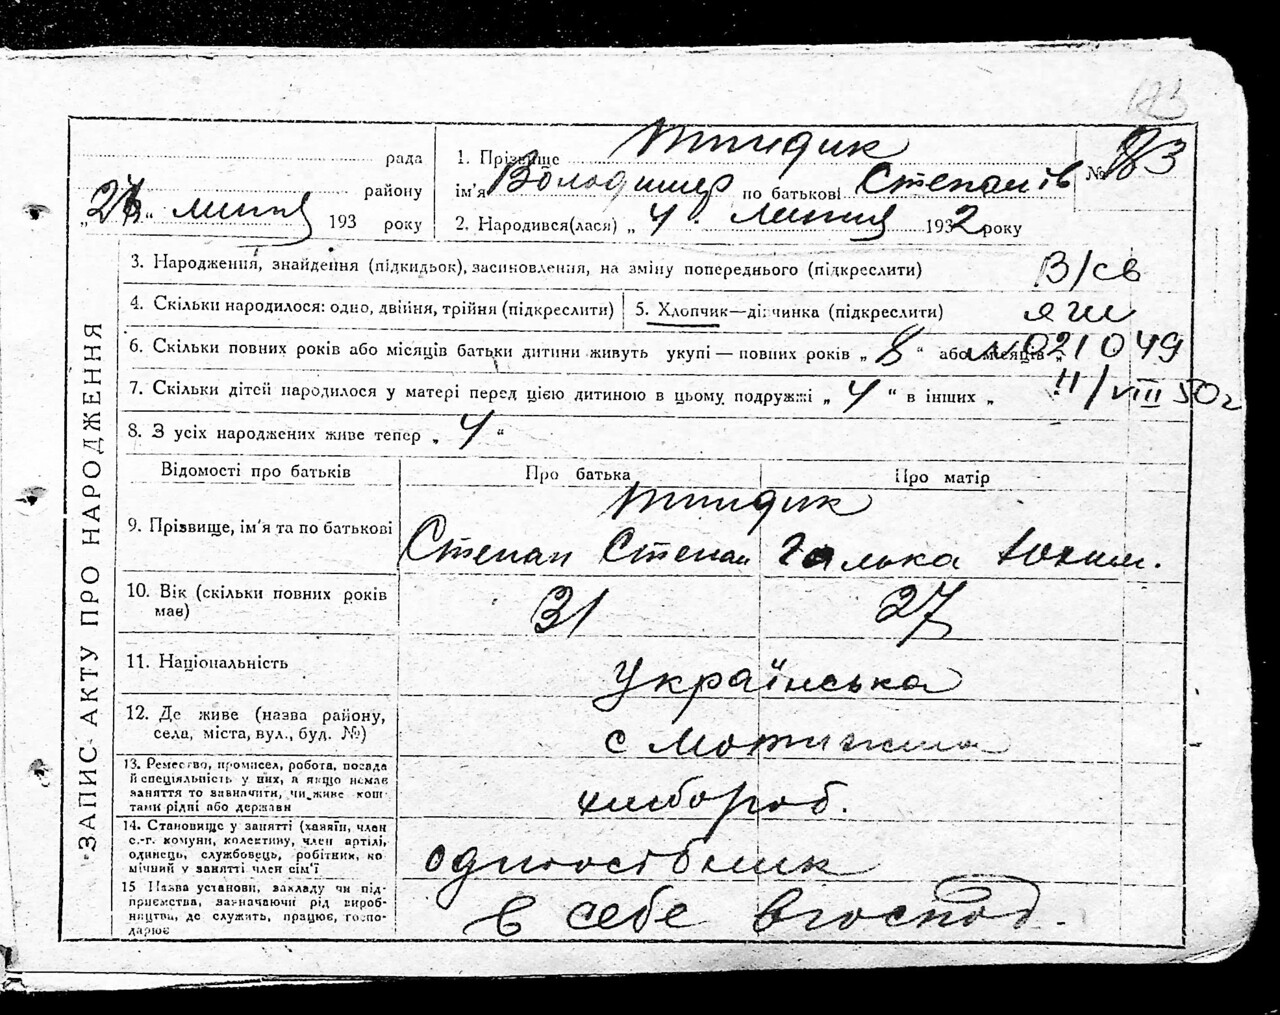 183
ЗАПИС АКТУ ПРО НАРОДЖЕННЯ
рада
району
" липня 193 року
1. Прізвище
ім'я Володимир по батькові Степанів
2. Народився(лася) „ 4 " липня 1932 року
№ 183
3. Народження, знайдення (підкидьок), засиновлення, на зміну попереднього (підкреслити)
В/св
4. Скільки народилося: одно, двійня, трійня (підкреслити)
5. Хлопчик—дівчинка (підкреслити)
яги
6. Скільки повних років або місяців батьки дитини живуть укупі — повних років „ 8 " або місяців „
№ 021049
7. Скільки дітей народилося у матері перед цією дитиною в цьому подружжі „ 4 " в інших „
11/VIII 50 г
8. З усіх народжених живе тепер „ 4 "
Відомості про батьків
Про батька
Про матір
9. Прізвище, ім'я та по батькові
Степан Степан
Галька Юхим.
10. Вік (скільки повних років має)
31
27
11. Національність
Українська
12. Де живе (назва району,
села, міста, вул., буд. №)
с Мотижина
13. Ремество, промисел, робота, посада
й спеціяльність у них, а якщо немає
заняття то зазначити, чи живе кош-
тами рідні або держави
хлібороб.
14. Становище у занятті (хазяїн, член
с.-г. комуни, колективу, член артілі,
одинець, службовець, робітник, ко
мічний у занятті член сім'ї
одноосібник
15 Назва установи, закладу чи під-
приємства, зазначаючи рід вироб-
ництва, де служить, працює, госпо-
дарює
в себе в господ.